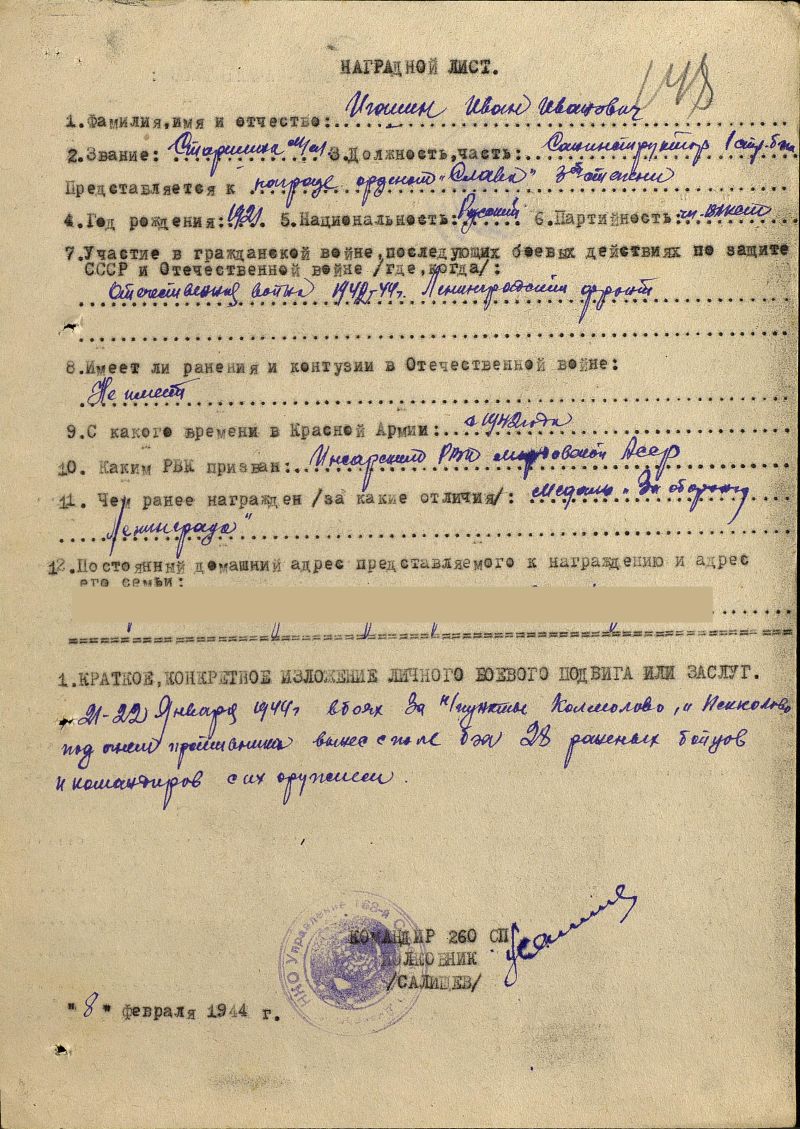 НАГРАДНОЙ ЛИСТ.
148
1.Фамилия,имя и отчество: Игошин Иван Иванович
2.Звание: Старшина м/сл 3.Должность,часть: Санинструктор 1 стр. б-на
Представляется к награде орденом "Слава" 3ей степени
4.Год рождения: 1921. 5.Национальность: Русский 6.Партийность:
7.Участие в гражданской войне,последующих боевых действиях по защите
СССР и Отечественной войне /где,когда/:
Отечественная война 1942-44г. Ленинградский фронт
8.Имеет ли ранения и контузии в Отечественной войне:
Не имеет
9.С какого времени в Красной Армии: с 1942 года
10. Каким РВК призван: Инсарским РВК мордовской Асср
11. Чем ранее награжден /за какие отличия/: медаль "За оборону
Ленинграда"
12.Постоянный домашний адрес представляемого к награждению и адрес
его семьи:
1.КРАТКОЕ,КОНКРЕТНОЕ ИЗЛОЖЕНИЕ ЛИЧНОГО БОЕВОГО ПОДВИГА ИЛИ ЗАСЛУГ.
21-22 Января 1944г в боях за н/пункты Колмолово, и Пекколово
под огнем противника вынес с поле боя 28 раненых бойцов
и командиров с их оружием.
НКО Управление 168-й
КОМАНДИР 260 СП
ПОЛКОВНИК
/САЛИЩЕВ/
"8" февраля 1944 г.